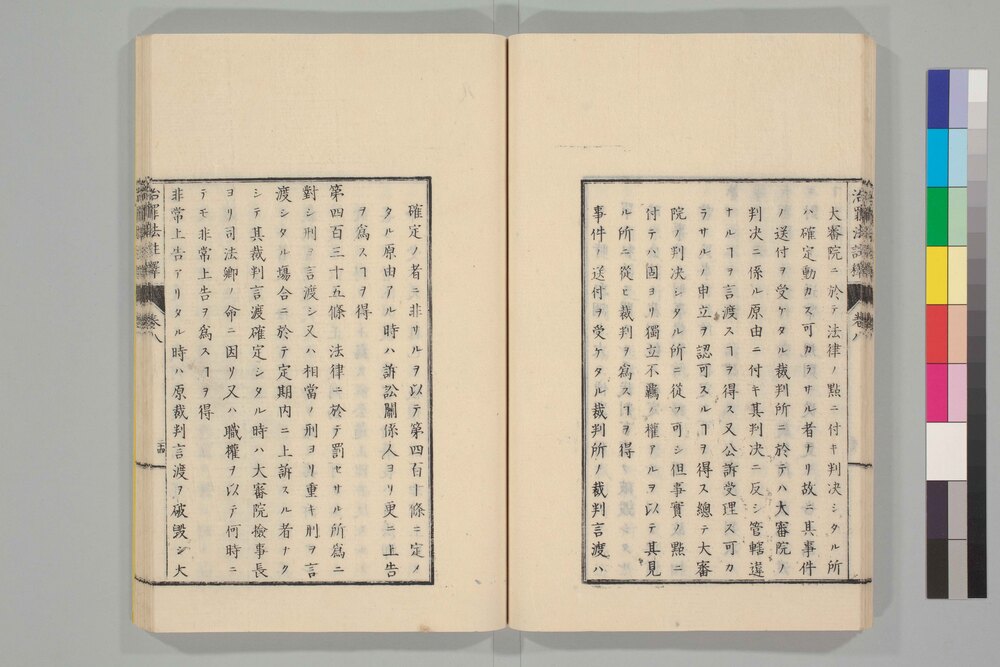 大審院ニ於テ法律ノ點ニ付キ判决シタル所
ハ確定動カス可カラサル者ナリ故ニ其事件
ノ送付ヲ受ケタル裁判所ニ於テハ大審院ノ
判决ニ係ル原由ニ付キ其判决ニ反シ管轄違
ナルヿヲ言渡スヿヲ得ス又公訴受理ス可カ
ラサルノ申立ヲ認可スルヿヲ得ス總テ大審
院ノ判决シタル所ニ從フ可シ但事實ノ點ニ
付テハ固ヨリ獨立不羈ノ權アルヲ以テ其見
ル所ニ從ヒ裁判ヲ爲スヿヲ得
事件ノ送付ヲ受ケタル裁判所ノ裁判言渡ハ
確定ノ者ニ非リルヲ以テ第四百十條ニ定メ
タル原由アル時ハ訴訟關係人ヨリ更ニ上告
ヲ爲スヿヲ得
第四百三十五條 法律ニ於テ罰セサル所爲ニ
對シ刑ヲ言渡シ又ハ相當ノ刑ヨリ重キ刑ヲ言
渡シタル塲合ニ於テ定期内ニ上訴スル者ナク
シテ其裁判言渡確定シタル時ハ大審院檢事長
ヨリ司法卿ノ命ニ因リ又ハ職權ヲ以テ何時ニ
テモ非常上告ヲ爲スヿヲ得
非常上告アリタル時ハ原裁判言渡ヲ破毀シ大
治罪法註釋 卷八